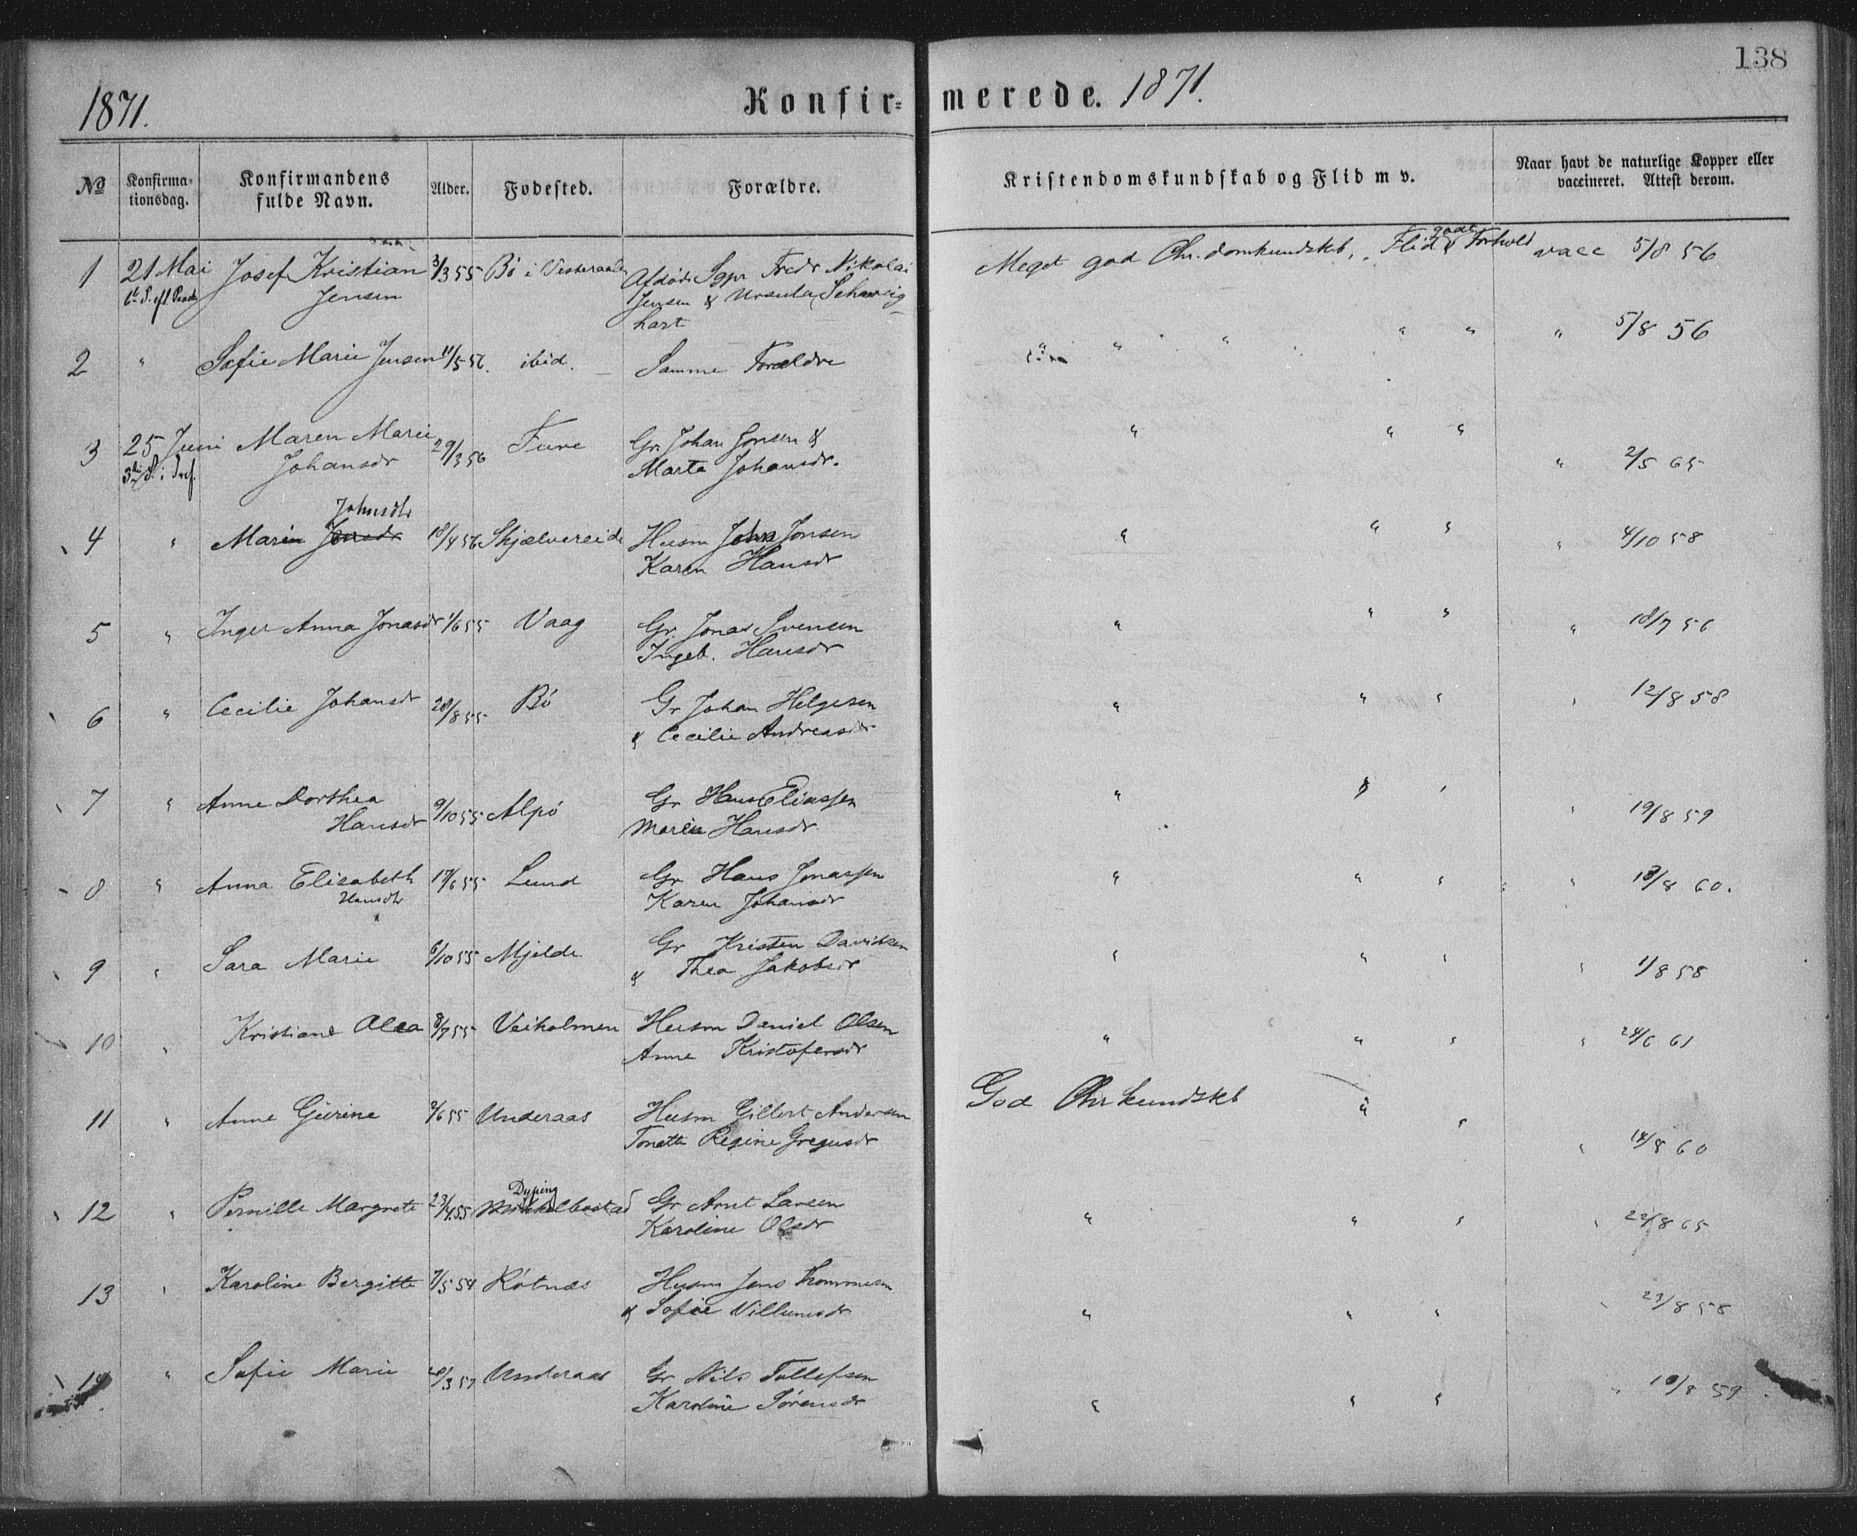 138
1871. Konfir= merede. 1871.
No Konfirma- Konfirmandens Alder. Fødested. Forældre. Kristendomskundskab og Flid m v. Naar havt de naturlige Kopper eller
tionsdag. fulde Navn. vaccineret. Attest derom.
1 21 Mai Josef Kristian 3/3 55 Bø i Vesteraalen Afdøde Sgpr Fredr Nikolai Meget god Chr.domkundskb, Flid & gode Forhold vacc 5/8 56
Jensen Jensen & Ursula Schweig-
hart
2 " Sofie Marie Jensen 11/5 56. ibid. Samme Forældre " " " " " " " 5/8 56
3 25 Juni Maren Marie 29/3 56 Fure Gr. Johan Jonsen & " " " " 2/5 65
3die S. i Tref. Johansdr Marta Johansdr.
Johnsdtr
4 " Maren Jonsdr 18/4 56 Skjælvereide Husm John Jonsen " " " " 4/10 58
Karen Hansdr
5 " Inger Anna Jonasdr 1/6 55 Vaag Gr. Jonas Svensen " " " " 18/7 56
Ingeb. Hansdr
6 " Cecilie Johansdr 28/8 55 Bø Gr Johan Helgesen " " " " 12/8 58
& Cecilie Andreasdr
7 " Anne Dorthea 9/10 55 Alpø Gr Hans Eliassen " " " " 19/8 59
Hansdr Maria Hansdr
8 " Anna Elisabeth 17/6 55 Lund Gr Hans Jonassen " " " " 18/8 60.
Hansdtr Karen Johansdr
9 " Sara Marie 6/10 55 Mjelde Gr Kristen Davidsen " " " " 1/8 58
& Thea Jakobsdr
10 " Kristiane Olea 8/7 55 Veiholmen Husm Daniel Olsen " " " " 24/6 61
Anne Kristofersdr
11 " Anne Gurine 2/6 55 Underaas Husm Gilbert Andersen God Chr kundskb " " " 14/8 60
Tonette Regine Gregusdr
Dyping
12 " Pernille Margrete 23/4 55 Mikkelbostad Gr Arnt Larsen " " " " 22/8 65
Karoline Olsdr
13 " Karoline Bergitte 7/5 54 Røtnæs Husm Jens Thommesen " " " " 23/8 58
& Sofie Villumsdr
14 " Sofie Marie 20/3 57 Underaas Gr Nils Tollefsen " " " " 18/8 59
Karoline Sørensdr